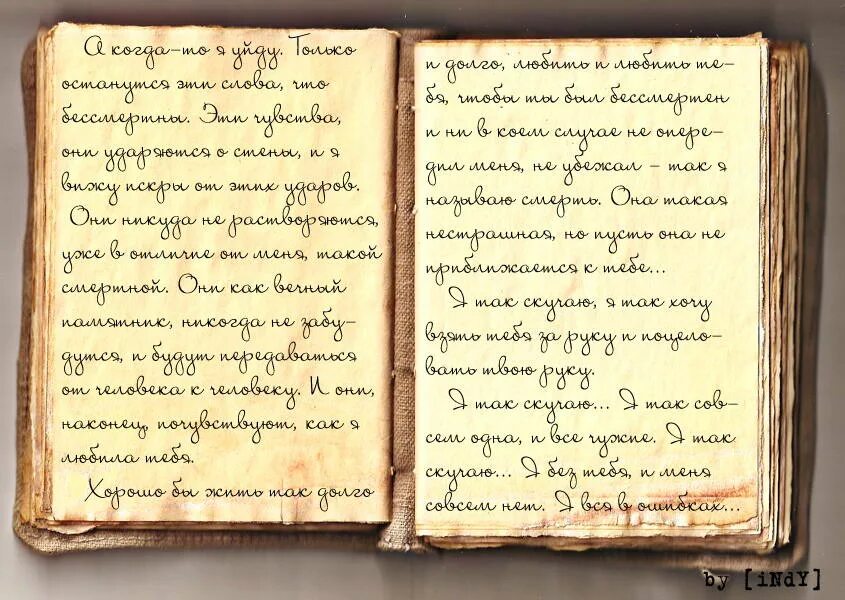 А когда-то я уйду. Только
останутся эти слова, что
бессмертны. Эти чувства,
они ударяются о стены, и я
вижу искры от этих ударов.
Они никуда не растворяются,
уже в отличие от меня, такой
смертной. Они как вечный
памятник, никогда не забу-
дутся, и будут передаваться
от человека к человеку. И они,
наконец, почувствуют, как я
любила тебя.
Хорошо бы жить так долго
и долго, любить и любить те-
бя, чтобы ты был бессмертен
и ни в коем случае не опере-
дил меня, не убежал - так я
называю смерть. Она такая
нестрашная, но пусть она не
приближается к тебе...
Я так скучаю, я так хочу
взять тебя за руку и поцело-
вать твою руку.
Я так скучаю... Я так сов-
сем одна, и все чужие. Я так
скучаю... Я без тебя, и меня
совсем нет. Я вся в ошибках...
by [iNdY]